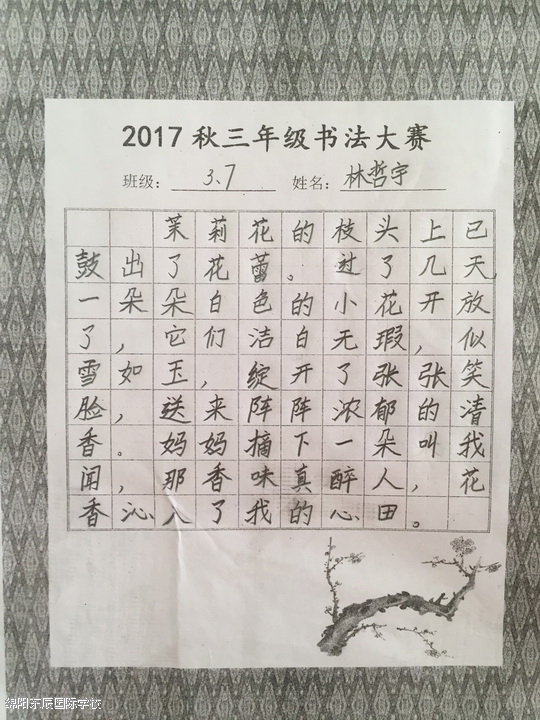 2017秋三年级书法大赛
班级：3.7 姓名：林哲宇
茉莉花的枝头上已
鼓出了花蕾。过了几天，
一朵朵白色的小花开放
了，它们洁白无瑕，似
雪如玉，绽开了张张笑
脸，送来阵阵浓郁的清
香。妈妈摘下一朵叫我
闻，那香味真醉人，花
香沁人了我的心田。
绵阳东辰国际学校